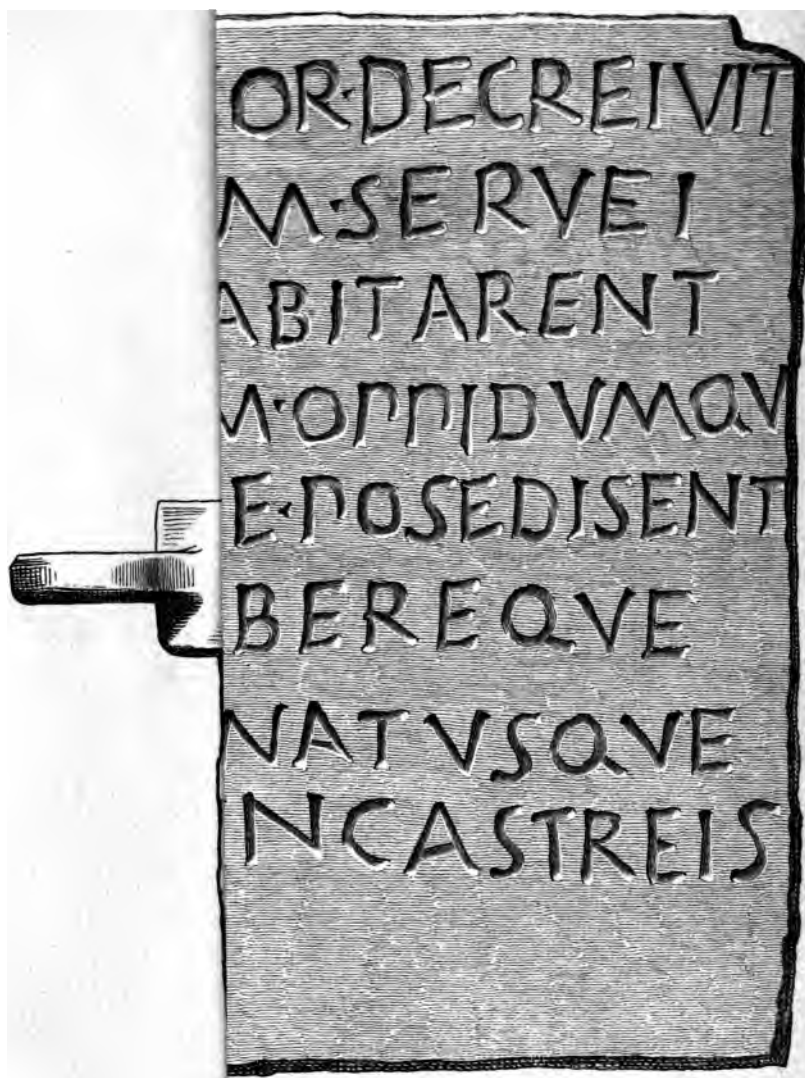 OR·DECREIVIT
M·SERVEI
ABITARENT
M·OPPIDVMQV
E·POSEDISENT
BEREQVE
NATVSQVE
NCASTREIS